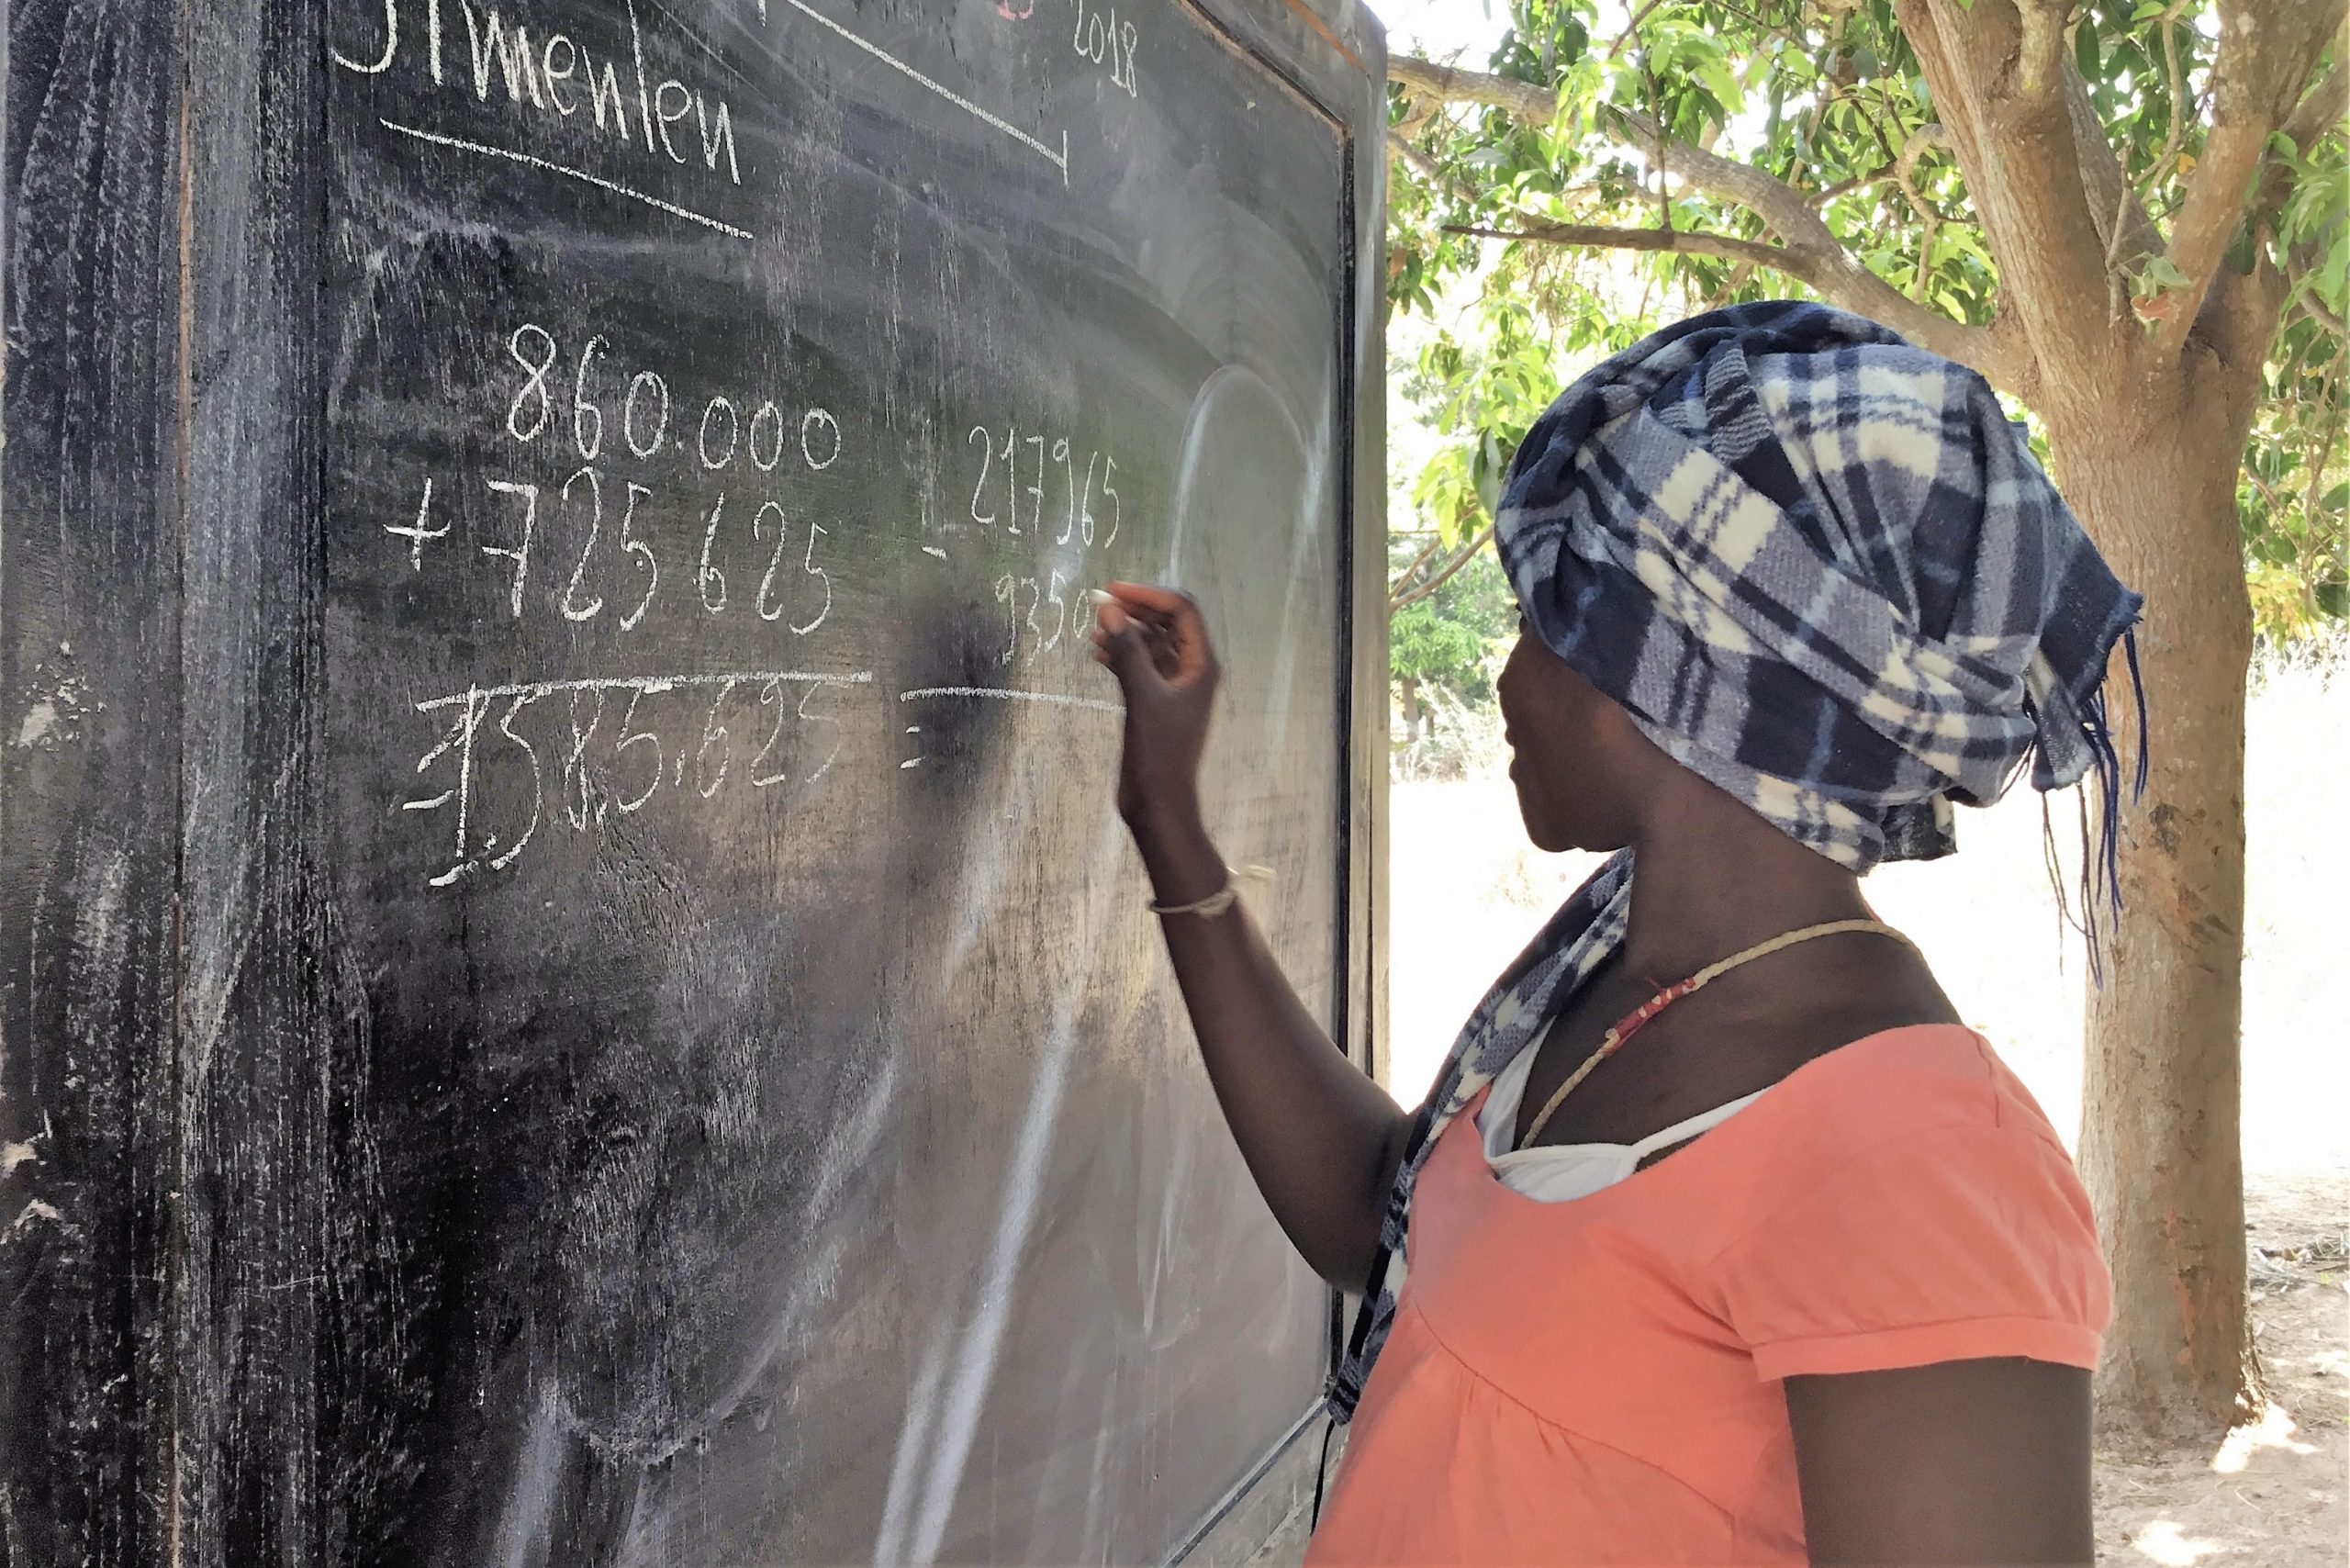 2018
Jimenlen
860.000
+ 725 625
= 1.585.625
- 217965
9350
=